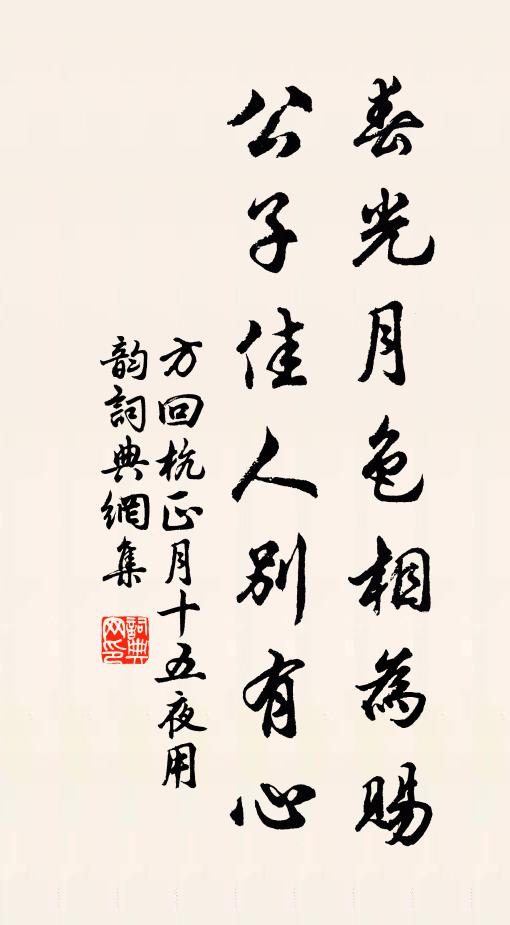 春光月色相為賜
公子佳人別有心
方回杭正月十五夜用
韵詞典網集
詞典
网印